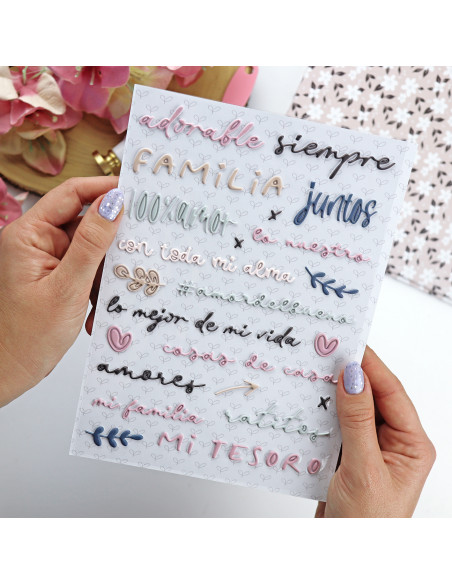 adorable siempre
FAMILIA
100x amor juntos
lo nuestro
con toda mi alma
#amordelbueno
lo mejor de mi vida
cosas de casa
amores
mi familia ratitos
MI TESORO